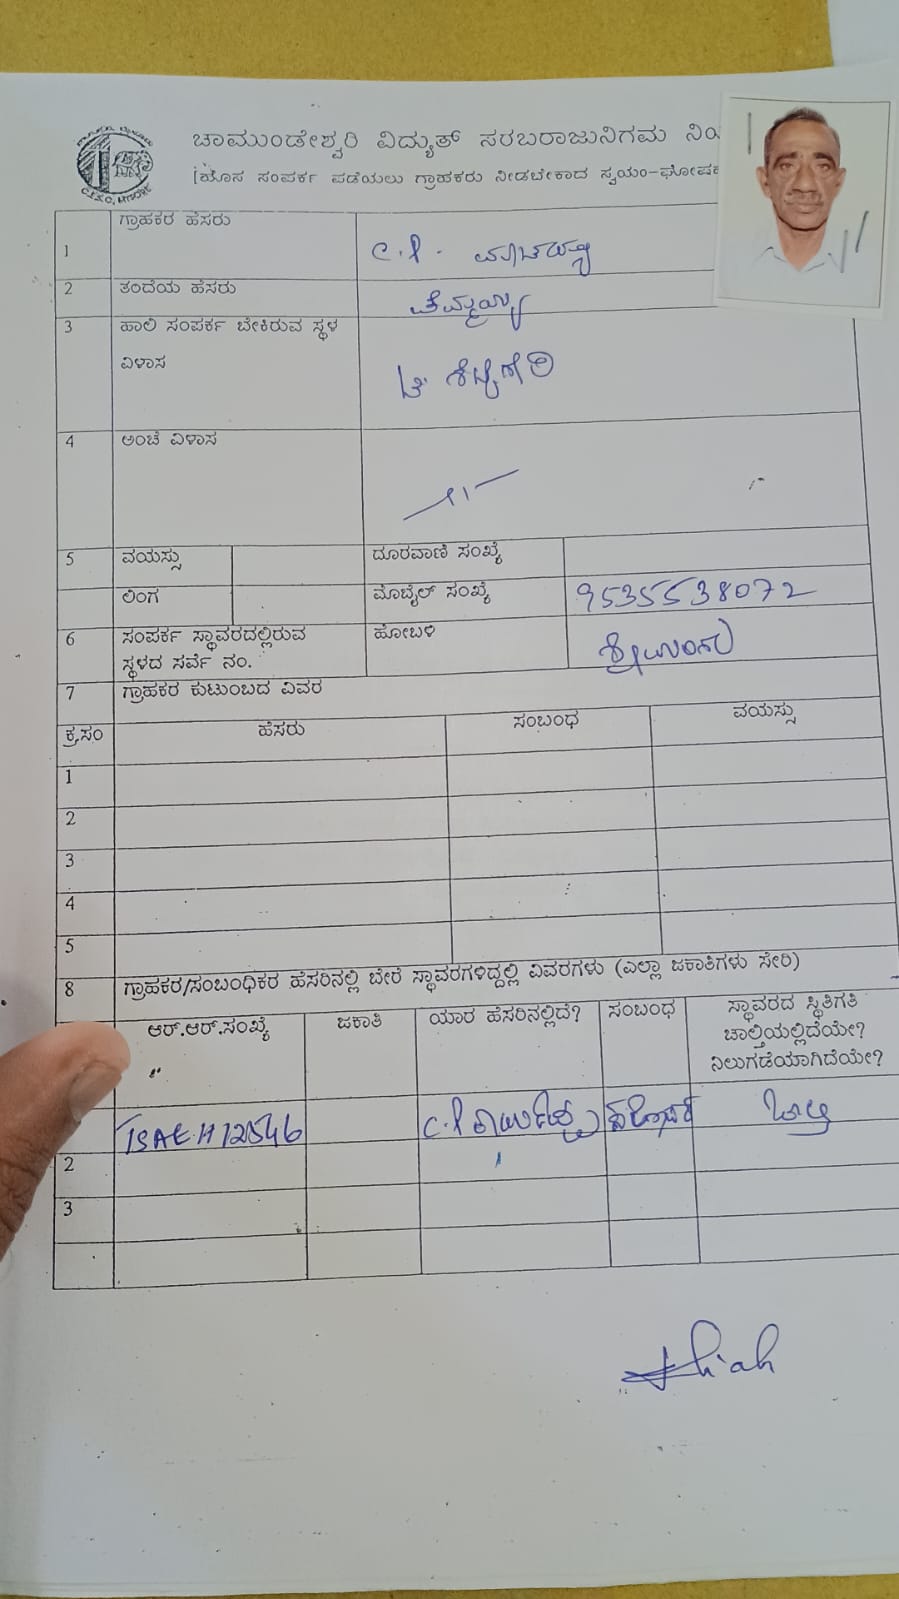 ಚಾಮುಂಡೇಶ್ವರಿ ವಿದ್ಯುತ್ ಸರಬರಾಜುನಿಗಮ
(ಹೊಸ ಸಂಪರ್ಕ ಪಡೆಯಲು ಗ್ರಾಹಕರು ನೀಡಬೇಕಾದ ಸ್ವಯಂ-ಘೋಷಣ
1 ಗ್ರಾಹಕರ ಹೆಸರು C.P. ಮಾಚಯ್ಯ
2 ತಂದೆಯ ಹೆಸರು ತಿಮ್ಮಯ್ಯ
3 ಹಾಲಿ ಸಂಪರ್ಕ ಬೇಕಿರುವ ಸ್ಥಳ
ವಿಳಾಸ ಟಿ. ಶೆಟ್ಟಿಗೇರಿ
4 ಅಂಚೆ ವಿಳಾಸ —11—
5 ವಯಸ್ಸು ದೂರವಾಣಿ ಸಂಖ್ಯೆ
ಲಿಂಗ ಮೊಬೈಲ್ ಸಂಖ್ಯೆ 9535538072
6 ಸಂಪರ್ಕ ಸ್ಥಾವರದಲ್ಲಿರುವ ಹೋಬಳಿ
ಸ್ಥಳದ ಸರ್ವೆ ನಂ. ಶ್ರೀಮಂಗಲ
7 ಗ್ರಾಹಕರ ಕುಟುಂಬದ ವಿವರ
ಕ್ರ.ಸಂ ಹೆಸರು ಸಂಬಂಧ ವಯಸ್ಸು
1
2
3
4
5
8 ಗ್ರಾಹಕರ/ಸಂಬಂಧಿಕರ ಹೆಸರಿನಲ್ಲಿ ಬೇರೆ ಸ್ಥಾವರಗಳಿದ್ದಲ್ಲಿ ವಿವರಗಳು (ಎಲ್ಲಾ ಜಕಾತಿಗಳು ಸೇರಿ)
ಆರ್.ಆರ್.ಸಂಖ್ಯೆ ಜಕಾತಿ ಯಾರ ಹೆಸರಿನಲ್ಲಿದೆ? ಸಂಬಂಧ ಸ್ಥಾವರದ ಸ್ಥಿತಿಗತಿ
ಚಾಲ್ತಿಯಲ್ಲಿದೆಯೇ?
ನಿಲುಗಡೆಯಾಗಿದೆಯೇ?
TSAEH12546 C.P ಕಾರ್ಯಪ್ಪ ಸಹೋದರ ಚಾಲ್ತಿ
2
3